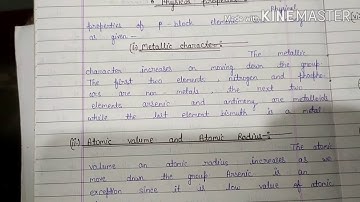 Physical properties
Made with KINEMASTER
Physical
properties of P-block elements
as given -
(i) Metallic character -:
The metallic
character increases on moving down the group.
The first two elements nitrogen and phospho-
rus are non metals. the next two
elements arsenic and antimony are metalloids
while the last element bismuth is a metal.
(ii) Atomic volume and Atomic Radius -:
The atomic
volume an atomic radius increases as we
move down the group Arsenic is an
exception since it is low value of atomic